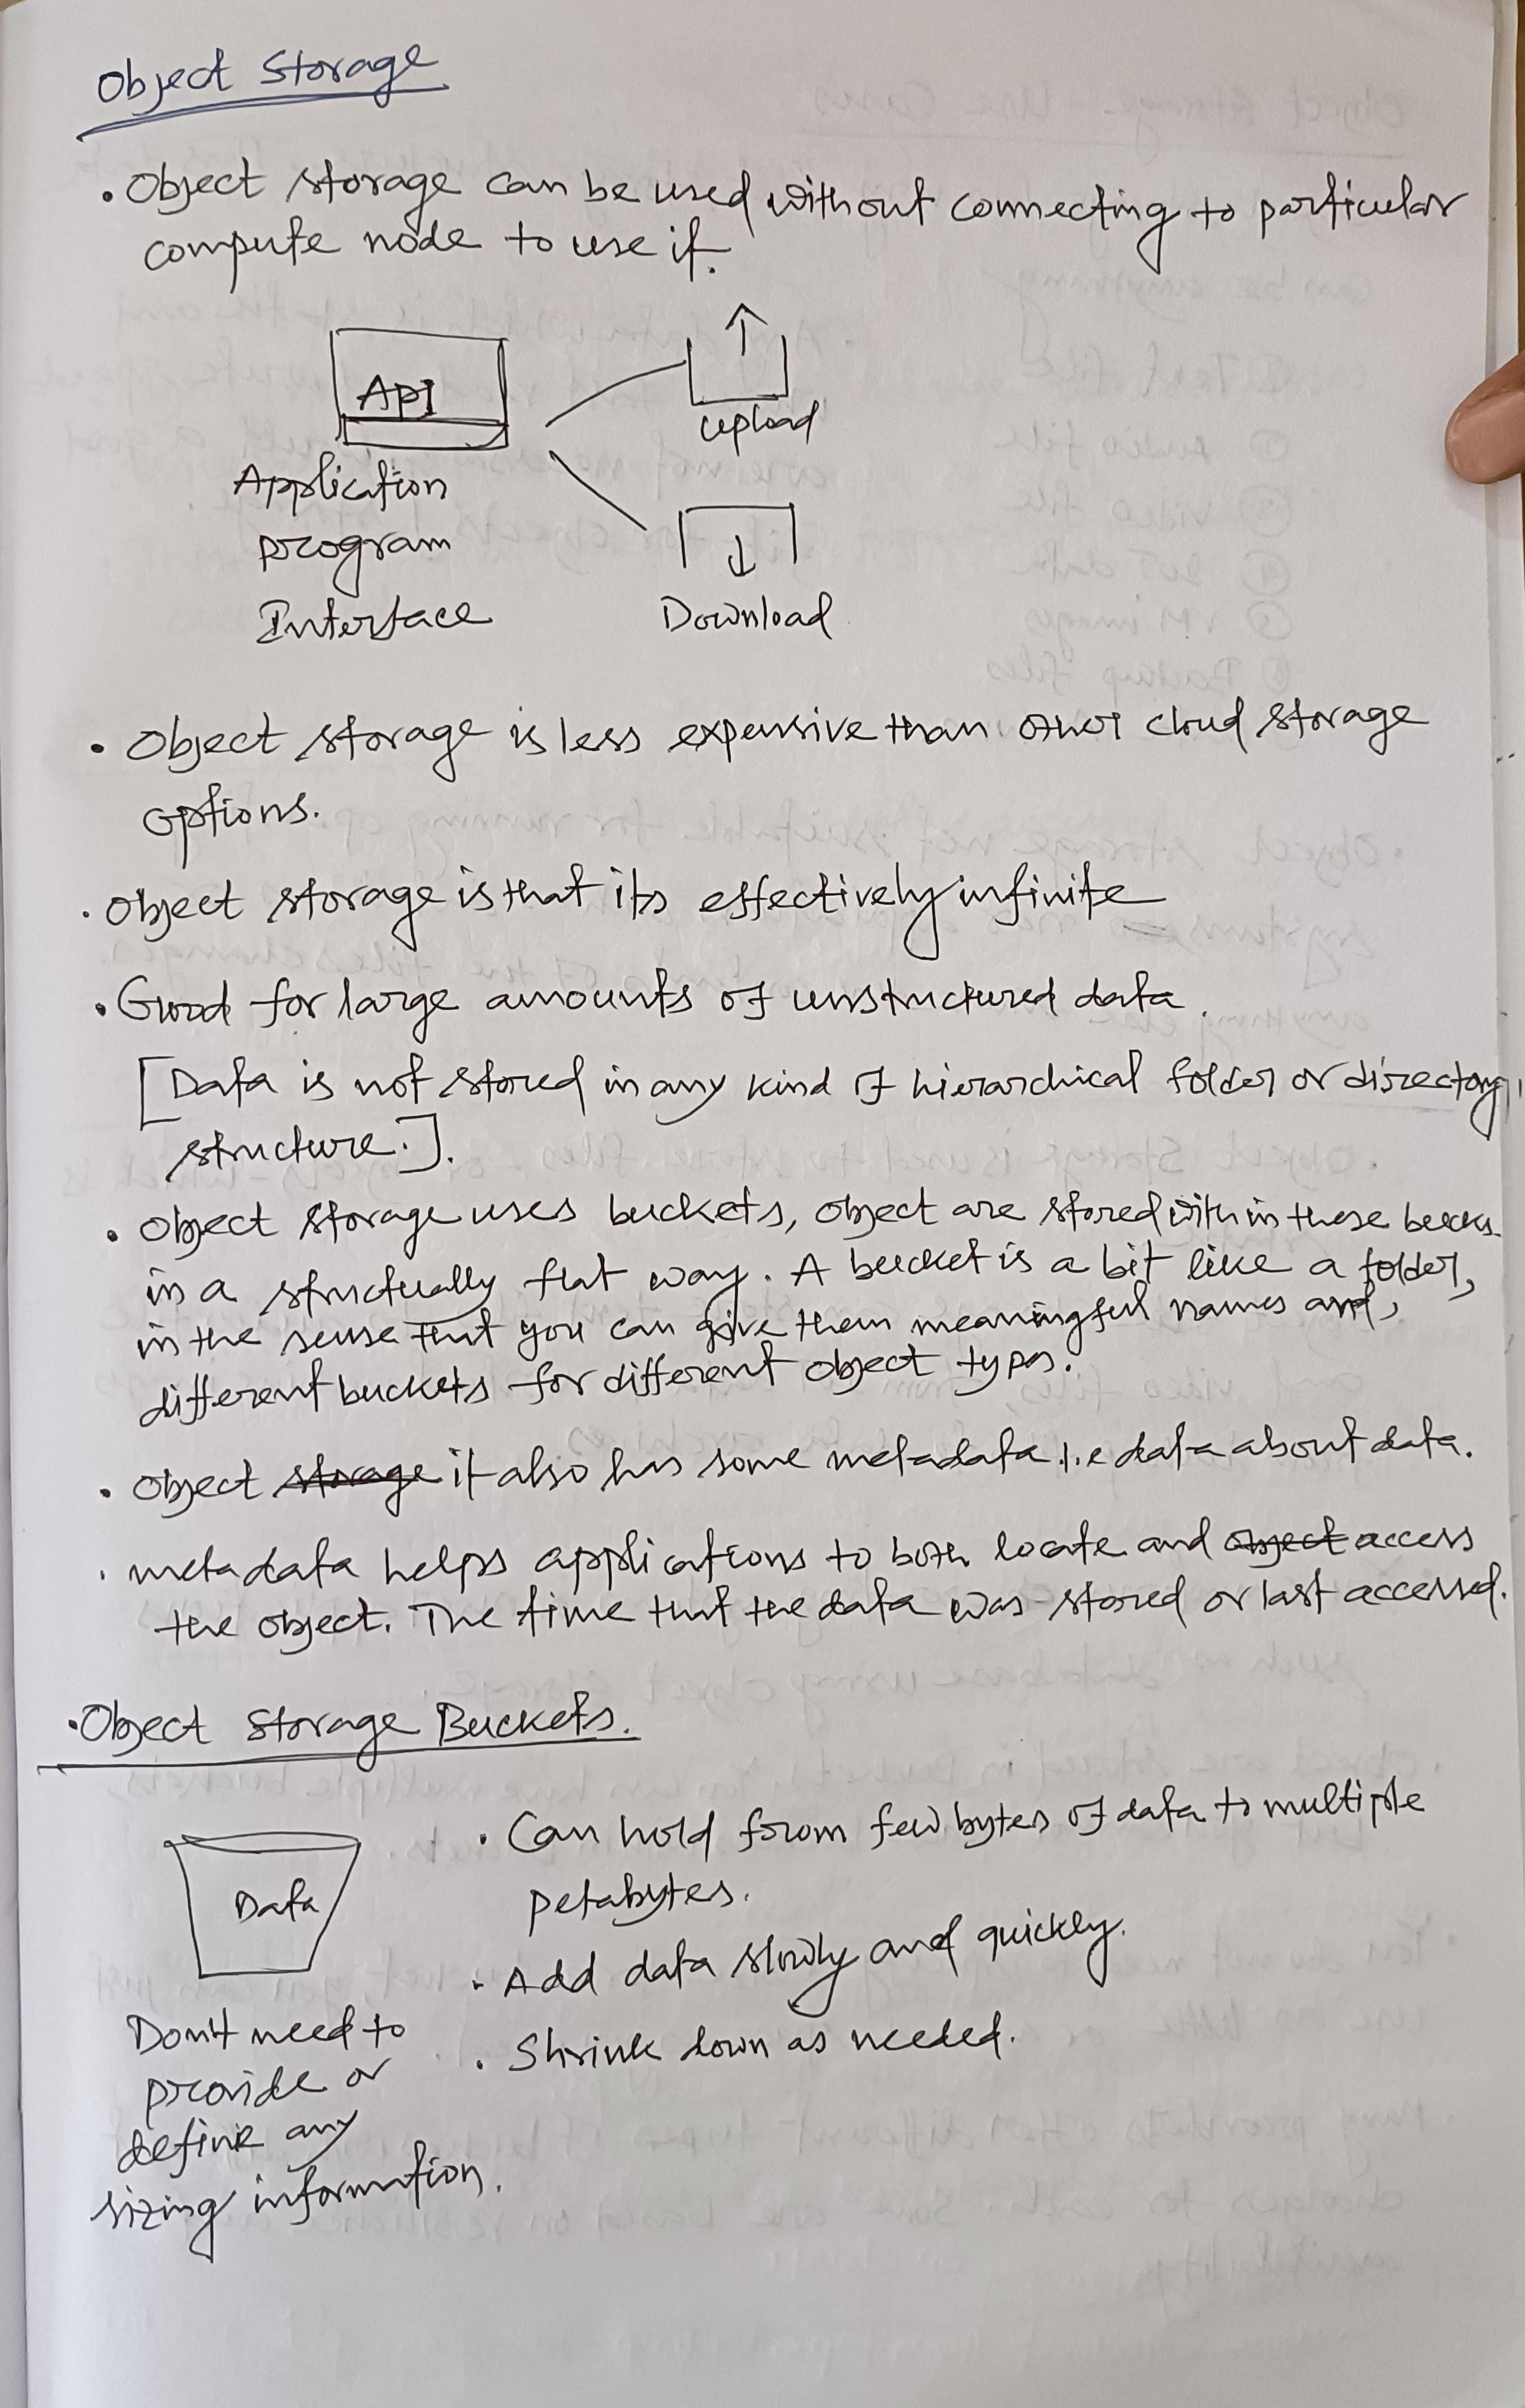 Object Storage
• Object storage can be used without connecting to particular
compute node to use it.
API
Application
program
Interface
Upload
Download
• Object storage is less expensive than other cloud storage
options.
• Object storage is that its effectively infinite
• Good for large amounts of unstructured data.
[Data is not stored in any kind of hierarchical folder or directory,
structure.].
• Object storage uses buckets, object are stored within these
in a structually flat way. A bucket is a bit like a folder,
in the sense that you can give them meaningful names and,
different buckets for different object types.
• Object storage it also has some metadata i.e data about data.
• metadata helps applications to both locate and object access
the object. The time that the data was stored or last accessed.
• Object Storage Buckets.
Data
Don't need to
provide or
define any
sizing information.
• Can hold from few bytes of data to multiple
petabytes.
• Add data slowly and quickly.
• Shrink down as needed.